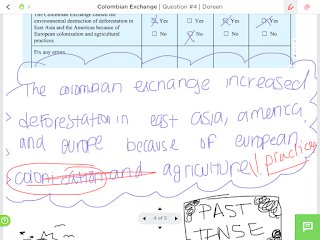 Colombian Exchange | Question #4 | Doreen
The Colombian Exchange caused the
environmental destruction of deforestation in
East Asia and the Americas because of
European colonization and agricultural
practices.
Yes
No
Yes
No
Yes
No
Fix any errors.
The colombian exchange increased
deforestation in east asia, america,
and europe because of european
colonization and agriculture practices
4 of 5
PAST
TENSE